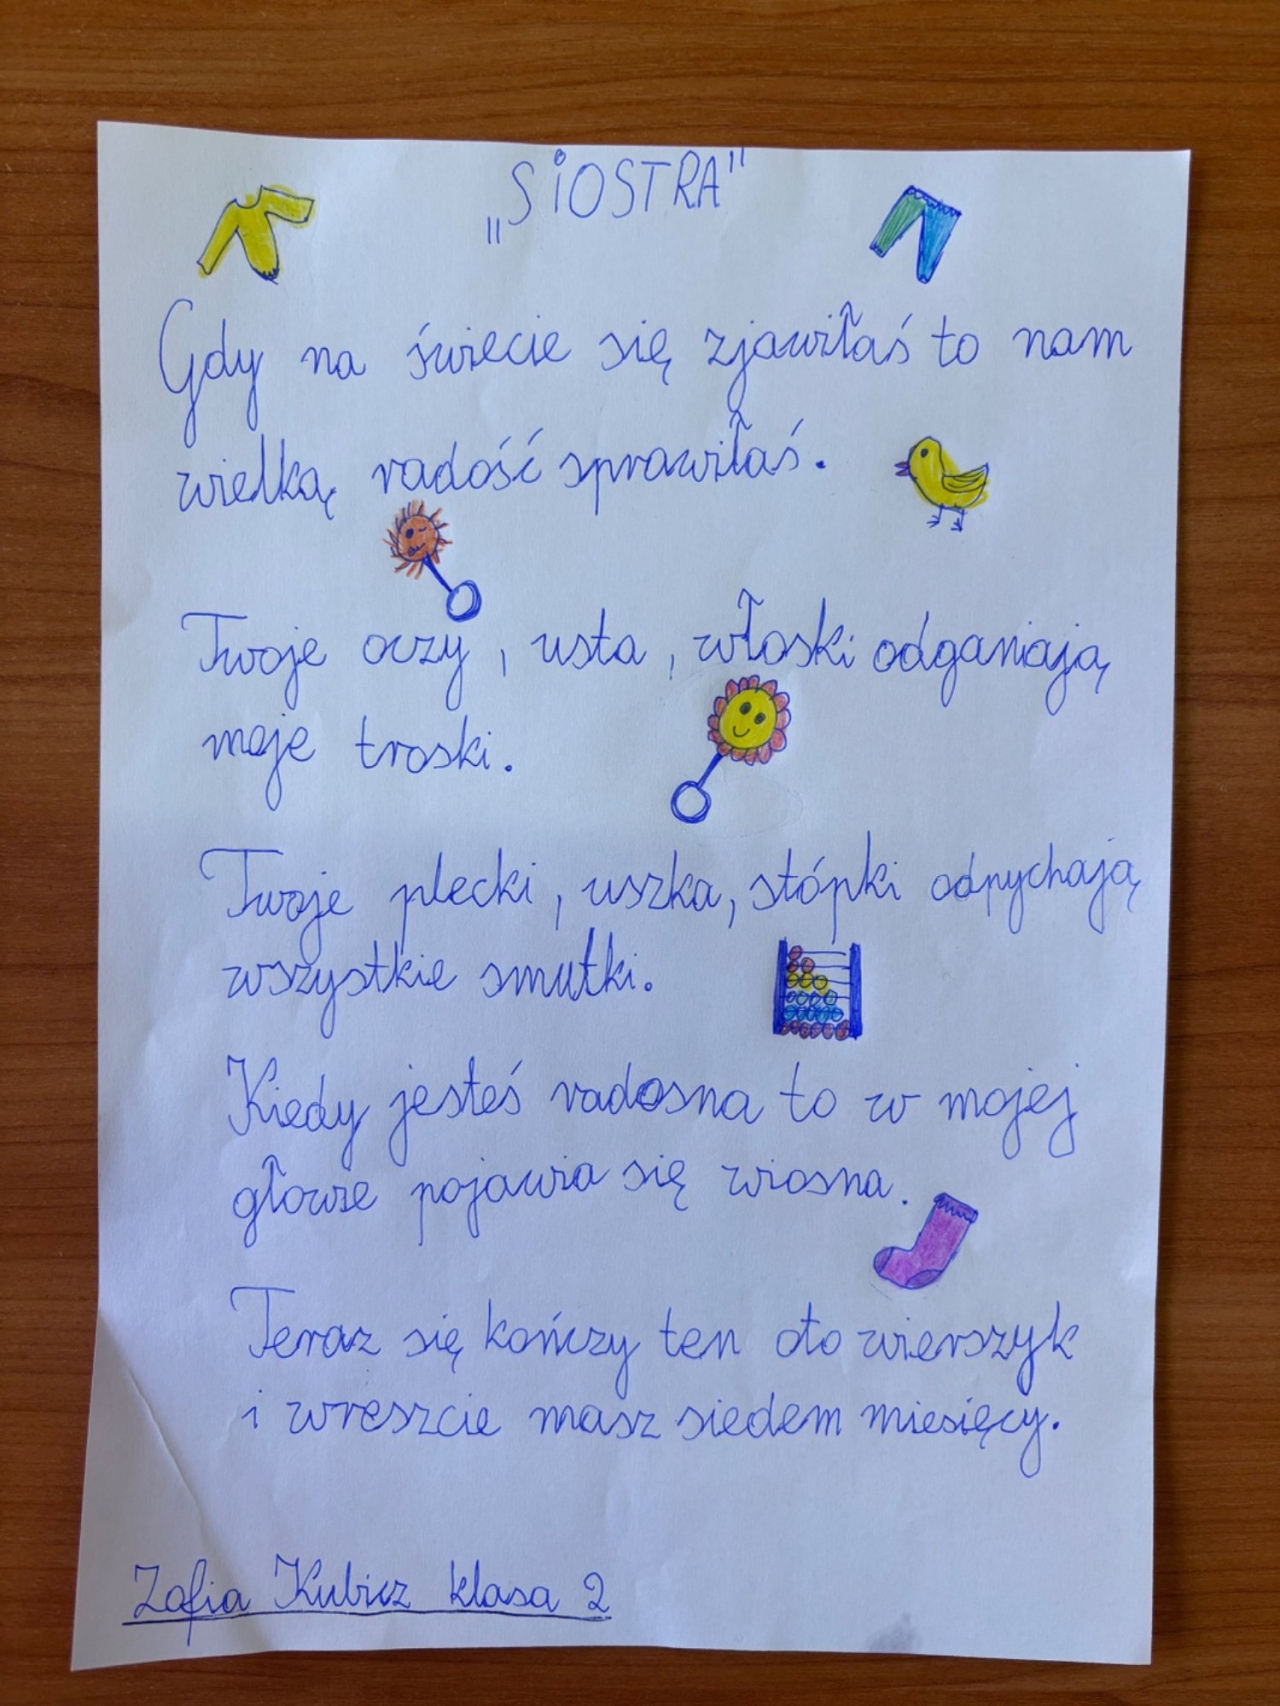 „SIOSTRA"
Gdy na świecie się zjawiłaś to nam
wielką radość sprawiłaś.
Twoje oczy, usta, włoski odganiają
moje troski.
Twoje plecki, uszka, stópki odpychają
wszystkie smutki.
Kiedy jesteś radosna to w mojej
głowie pojawia się wiosna.
Teraz się kończy ten oto wierszyk
i wreszcie masz siedem miesięcy.
Zofia Kubicz klasa 2